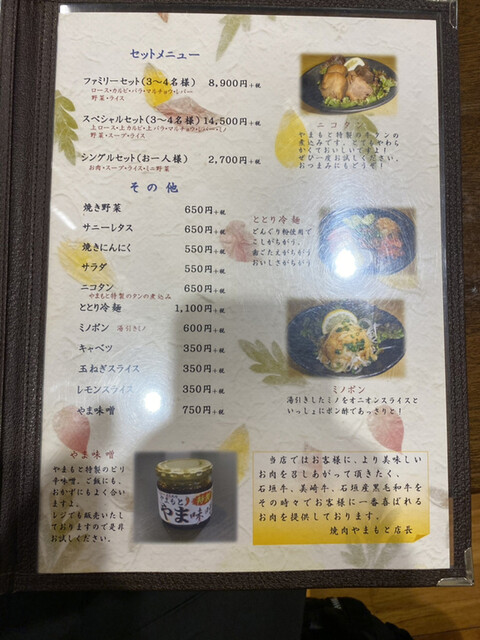 セットメニュー
ファミリーセット(3〜4名様) 8,900円+税
ロース・カルビ・バラ・マルチョウ・レバー
野菜・ライス
スペシャルセット(3〜4名様) 14,500円+税
上ロース・上カルビ・上バラ・マルチョウ・レバー・ミノ
野菜・スープ・ライス
シングルセット(お一人様) 2,700円+税
お肉・スープ・ライス・ミニ野菜
その他
焼き野菜 650円+税
サニーレタス 650円+税
焼きにんにく 550円+税
サラダ 550円+税
ニコタン 650円+税
やまもと特製のタンの煮込み
ととり冷麺 1,100円+税
ミノポン 湯引きミノ 600円+税
キャベツ 350円+税
玉ねぎスライス 350円+税
レモンスライス 350円+税
やま味噌 750円+税
ニコタン
やまもと特製の牛タンの
煮込みです。とてもやわら
かくておいしいですよ!
ぜひ一度お試しください。
おつまみにもどうぞ!
ととり冷麺
どんぐり粉使用で
こしがちがう。
歯ごたえがちがう
おいしさがちがう
ミノポン
湯引きしたミノをオニオンスライスと
いっしょにポン酢であっさりと!
やま味噌
やまもと特製のピリ
辛味噌。ご飯にも、
おかずにもよく合い
ますよ。
レジでも販売いたし
ておりますので是非
お試しください。
やまもとの
やま味噌
当店ではお客様に、より美味しい
お肉を召しあがって頂きたく、
石垣牛、美崎牛、石垣産黒毛和牛を
その時々でお客様に一番喜ばれる
お肉を提供しております。
焼肉やまもと店長